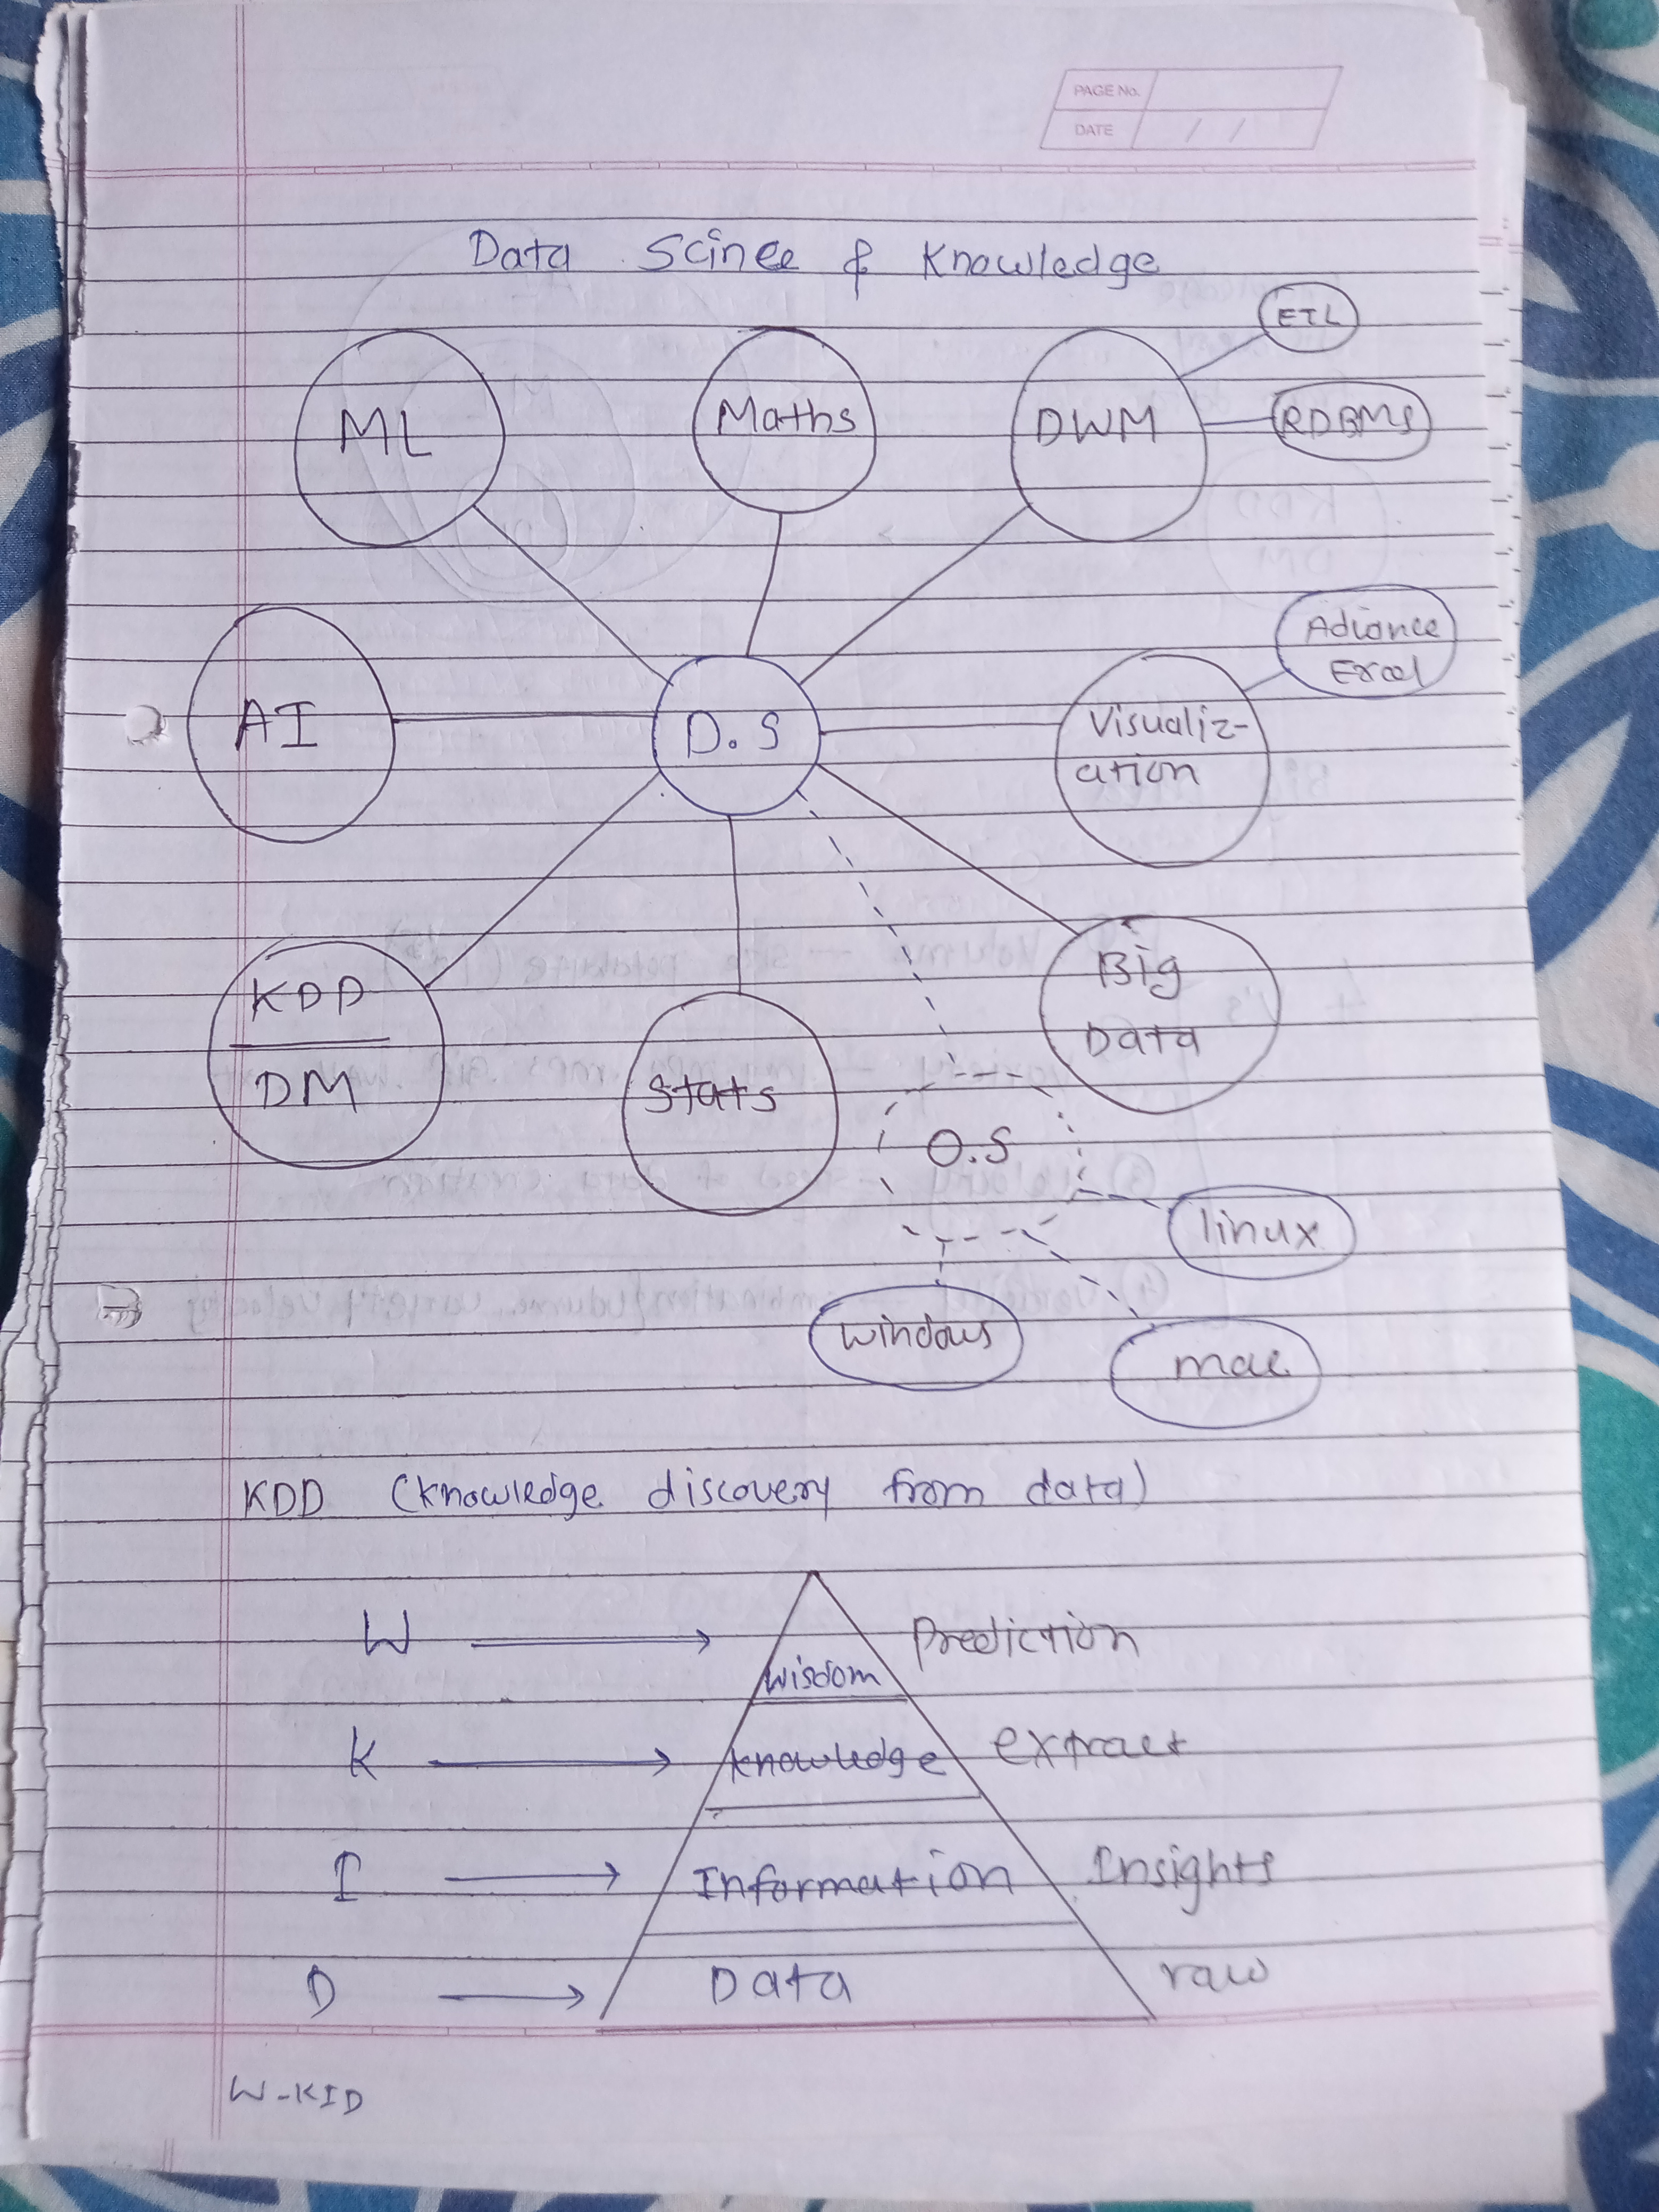 PAGE No.
DATE / /
Data Scince & Knowledge
ETL
ML
Maths
DWM
RDBMS
Adiance
Excel
AI
D.S
Visualiz-
ation
KDD
DM
Stats
Big
Data
O.S
linux
windows
mac
KDD (knowledge discovery from data)
W
wisdom
Prediction
K
knowledge
extract
I
Information
Insights
D
Data
raw
W-KID